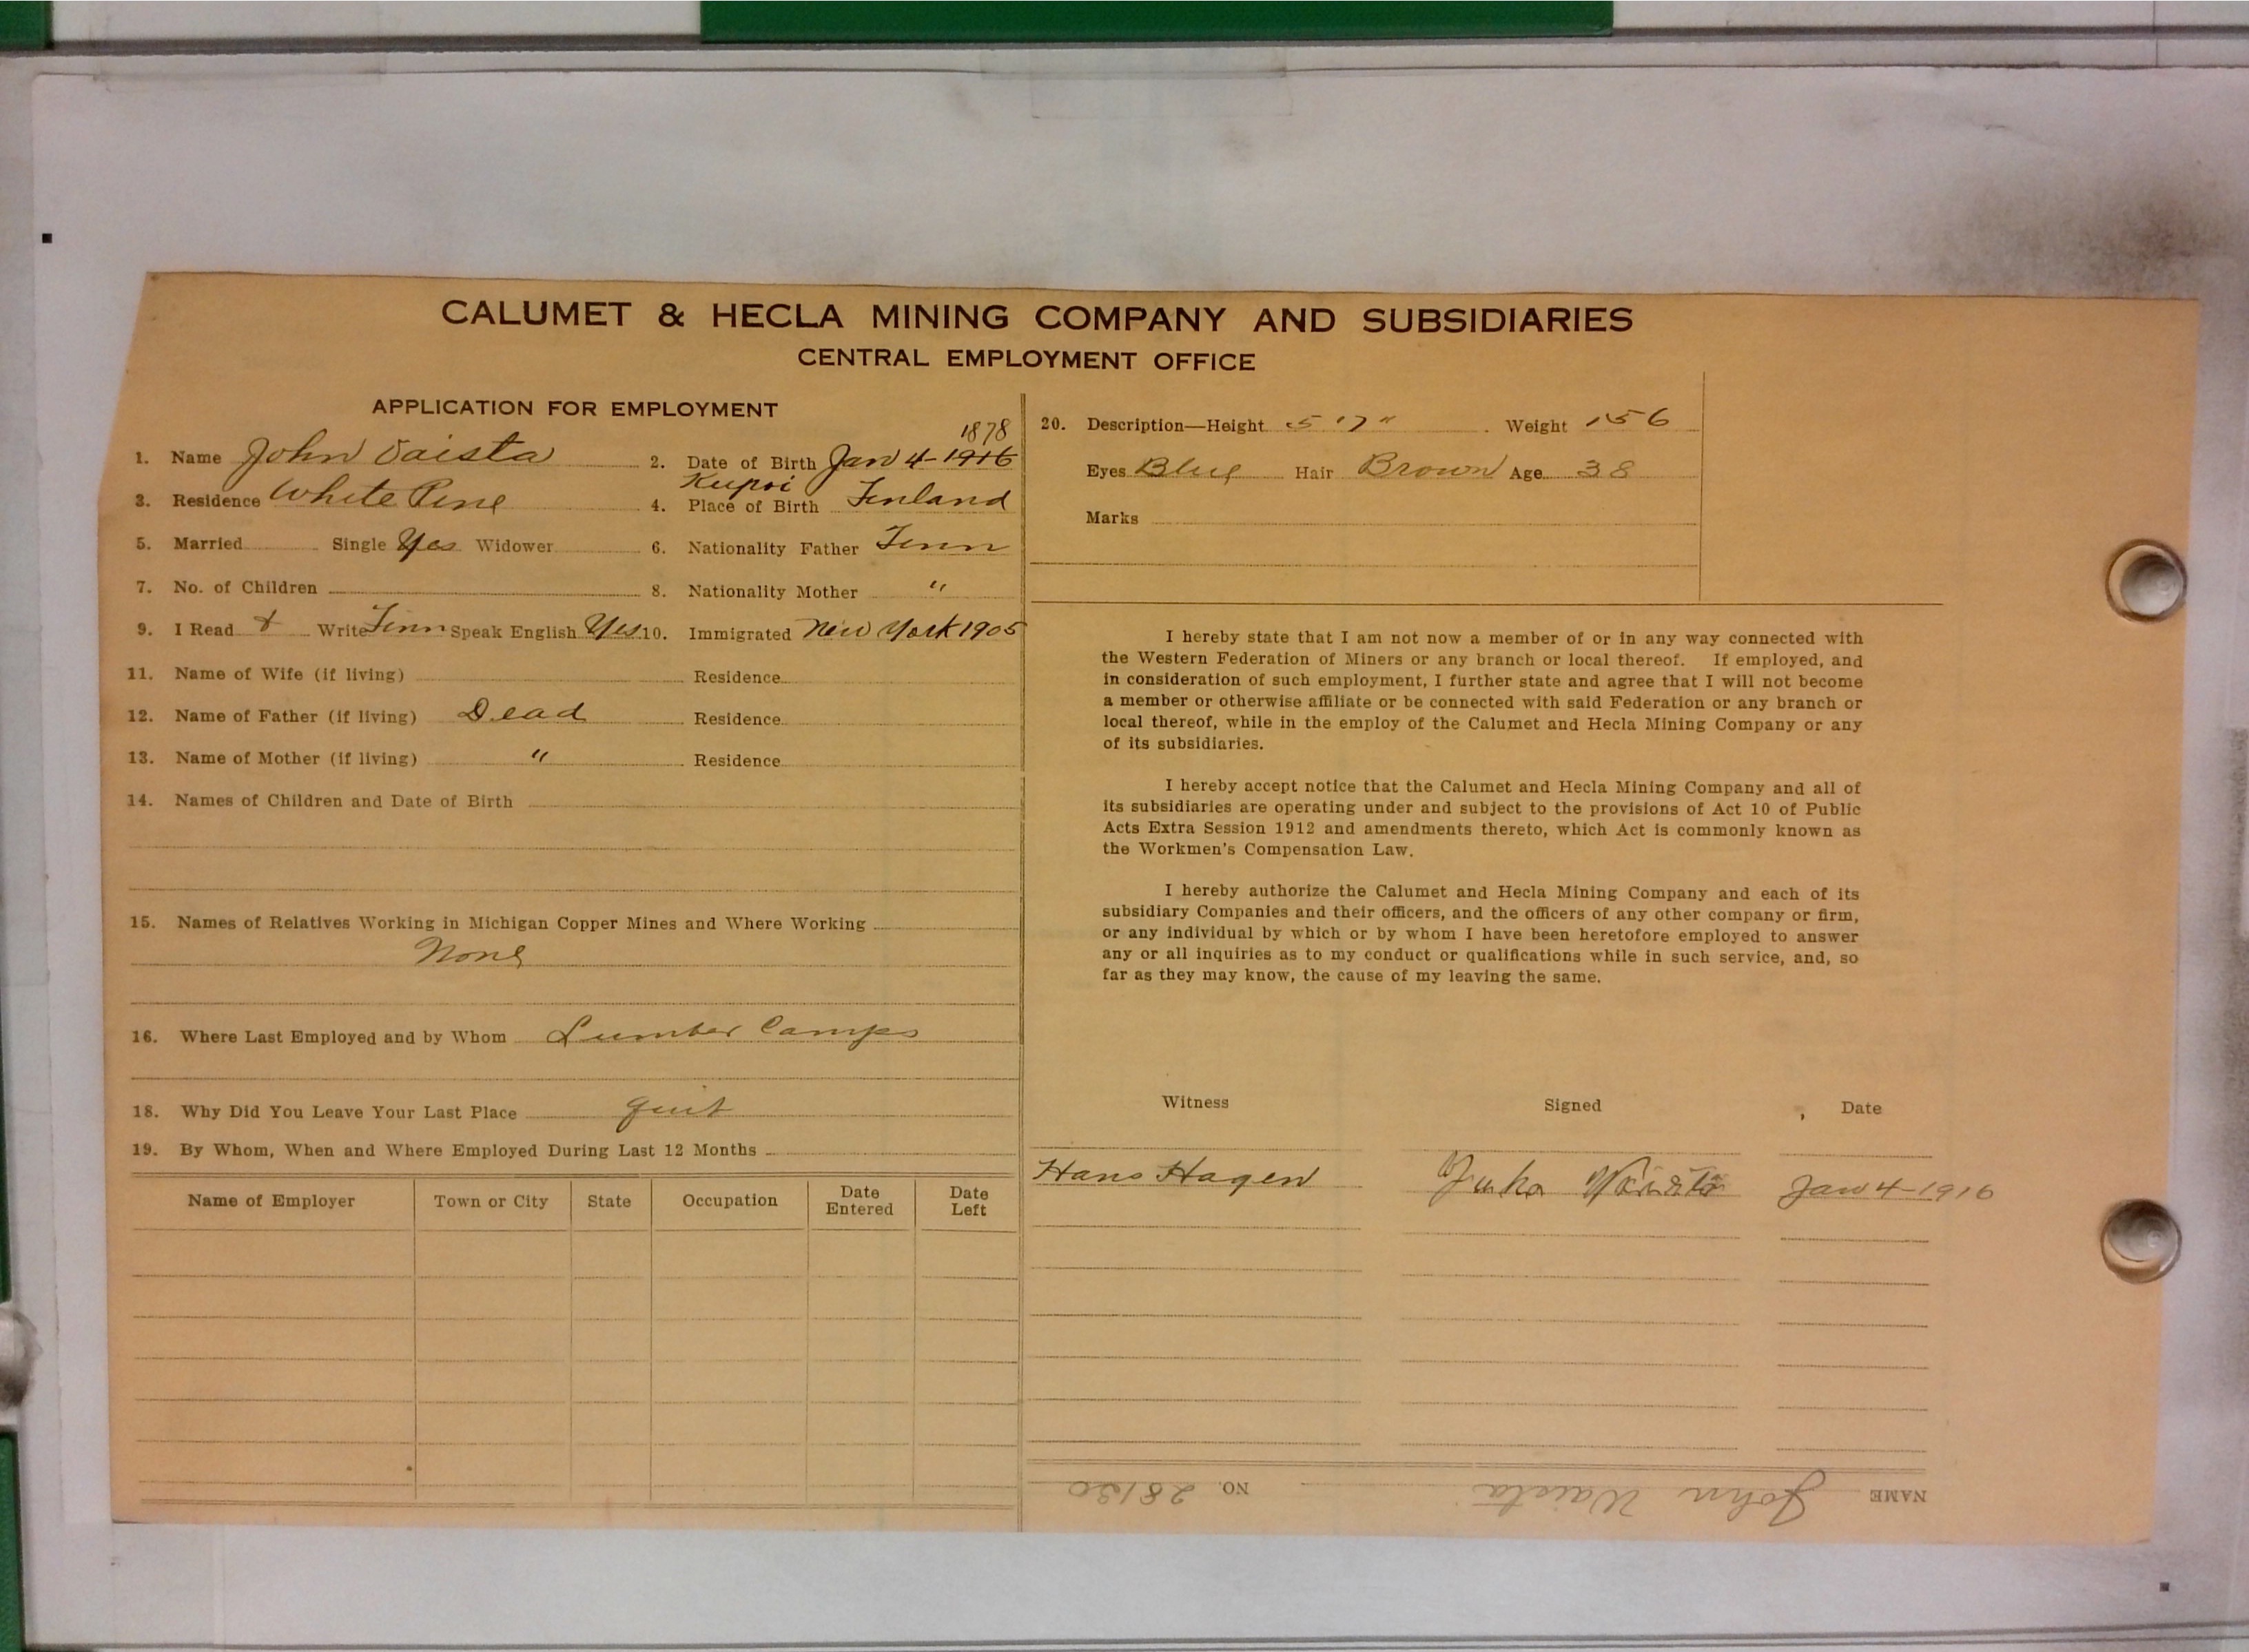 CALUMET & HECLA MINING COMPANY AND SUBSIDIARIES
CENTRAL EMPLOYMENT OFFICE
APPLICATION FOR EMPLOYMENT
1878
1. Name John Vaista 2. Date of Birth Jan 4-1916
Kupoi
3. Residence White Pine 4. Place of Birth Finland
5. Married Single Yes Widower 6. Nationality Father Finn
7. No. of Children 8. Nationality Mother "
9. I Read & Write Finn Speak English Yes 10. Immigrated New York 1905
11. Name of Wife (if living) Residence
12. Name of Father (if living) Dead Residence
13. Name of Mother (if living) " Residence
14. Names of Children and Date of Birth
15. Names of Relatives Working in Michigan Copper Mines and Where Working
None
16. Where Last Employed and by Whom Lumber Camps
18. Why Did You Leave Your Last Place quit
19. By Whom, When and Where Employed During Last 12 Months
Name of Employer Town or City State Occupation Date Entered Date Left
20. Description—Height 5'7" Weight 156
Eyes Blue Hair Brown Age 38
Marks
I hereby state that I am not now a member of or in any way connected with
the Western Federation of Miners or any branch or local thereof. If employed, and
in consideration of such employment, I further state and agree that I will not become
a member or otherwise affiliate or be connected with said Federation or any branch or
local thereof, while in the employ of the Calumet and Hecla Mining Company or any
of its subsidiaries.
I hereby accept notice that the Calumet and Hecla Mining Company and all of
its subsidiaries are operating under and subject to the provisions of Act 10 of Public
Acts Extra Session 1912 and amendments thereto, which Act is commonly known as
the Workmen's Compensation Law.
I hereby authorize the Calumet and Hecla Mining Company and each of its
subsidiary Companies and their officers, and the officers of any other company or firm,
or any individual by which or by whom I have been heretofore employed to answer
any or all inquiries as to my conduct or qualifications while in such service, and, so
far as they may know, the cause of my leaving the same.
Witness Signed Date
Hans Hagen Juho Jan 4-1916
NAME John Waista NO. 28130